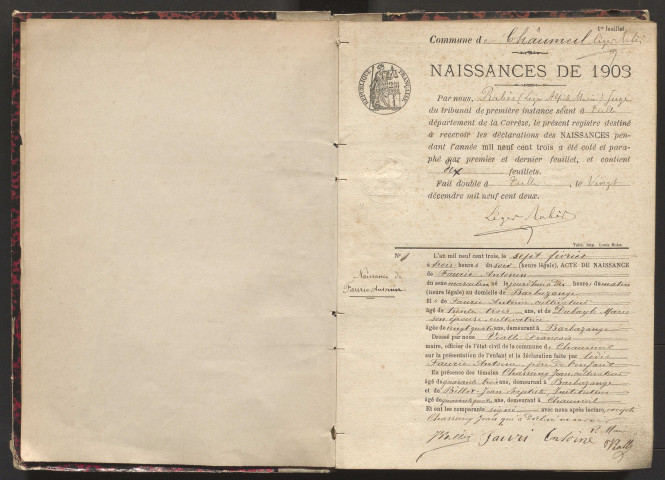 1er feuillet
Commune de Chaumeil Léger Rabès
NAISSANCES DE 1903
RÉPUBLIQUE FRANÇAISE
Par nous, Rabès (Léger Alfred Marie) Juge
du tribunal de première instance séant à Tulle
département de la Corrèze, le présent registre destiné
à recevoir les déclarations des NAISSANCES pen-
dant l'année mil neuf cent trois a été coté et para-
phé par premier et dernier feuillet, et contient
dix feuillets.
Fait double à Tulle, le Vingt
décembre mil neuf cent deux.
Léger Rabès
Tulle, Imp. Louis
N° 1
Naissance de
Faurie Antonin
L'an mil neuf cent trois, le sept février
à trois heures du soir (heure légale), ACTE DE NAISSANCE
de Faurie Antonin
du sexe masculin né heures du matin
(heure légale) au domicile de Barbazange
fil s de Faurie Antoine cultivateur
âgé de trente trois ans, et de Marie
son épouse cultivatrice
âgée de vingt quatre ans, demeurant à Barbazange
Dressé par nous Vialle François
maire, officier de l'état civil de la commune de Chaumeil
sur la présentation de l'enfant et la déclaration faite par ledit
Faurie Antoine père de l'enfant
En présence des témoins Chassaing Jean cultivateur
âgé de quarante trois ans, demeurant à Barbazange
et de Billot Jean Baptiste Instituteur
âgé de ans, demeurant à Chaumeil
Et ont les comparants signé avec nous après lecture, excepté
Chassaing Jean qui a déclaré ne savoir
Le Maire
Billot Faurie Antoine Vialle